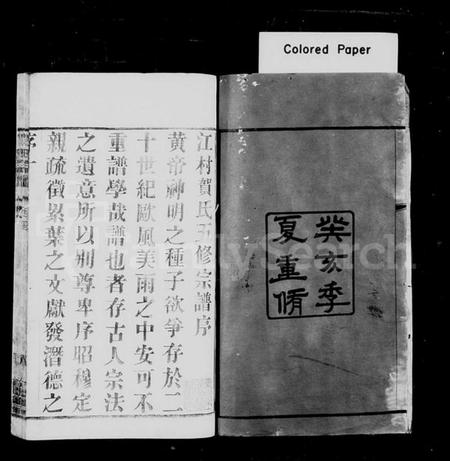 Colored Paper
癸亥季
夏重脩
江村賀氏五修宗譜序
黄帝神明之種子欲爭存於二
十世紀歐風美雨之中安可不
重譜學哉譜也者存古人宗法
之遺意所以別尊卑序昭穆定
親疏徵累葉之文獻發潛德之
序一